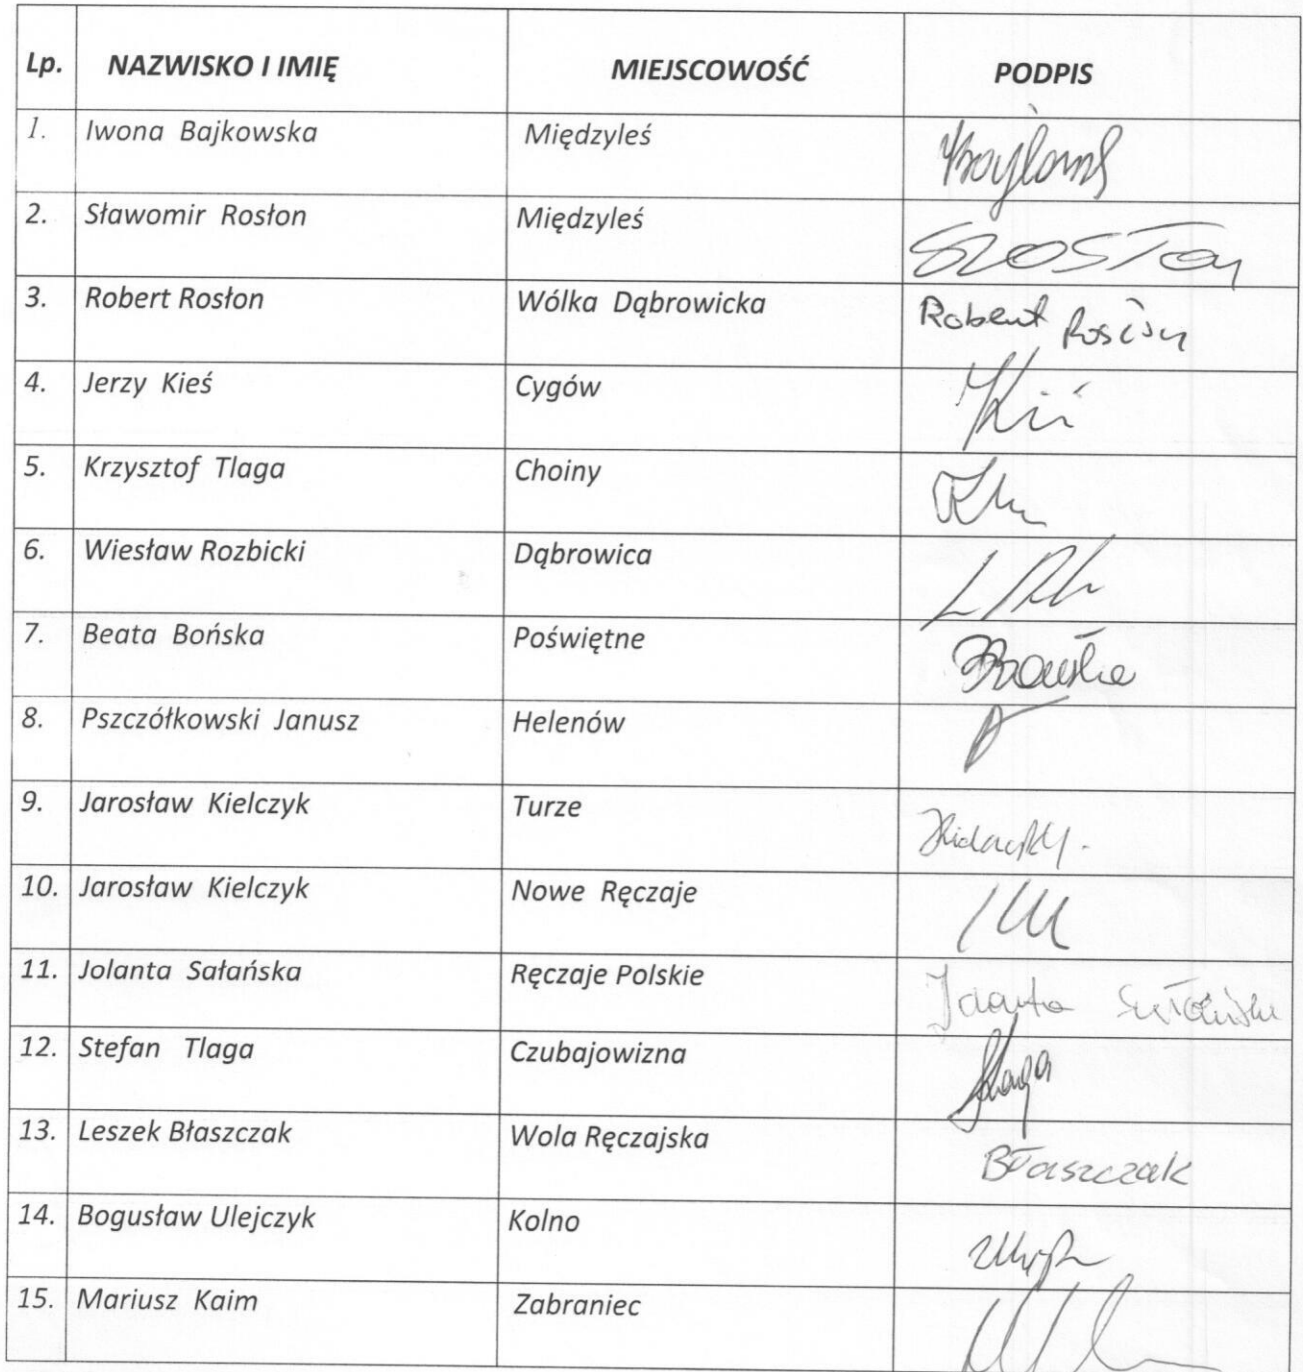 Lp. NAZWISKO I IMIĘ MIEJSCOWOŚĆ PODPIS
1. Iwona Bajkowska Międzyleś
2. Sławomir Rosłon Międzyleś
3. Robert Rosłon Wólka Dąbrowicka Robert Rosłon
4. Jerzy Kieś Cygów
5. Krzysztof Tlaga Choiny
6. Wiesław Rozbicki Dąbrowica
7. Beata Bońska Poświętne
8. Pszczółkowski Janusz Helenów
9. Jarosław Kielczyk Turze
10. Jarosław Kielczyk Nowe Ręczaje
11. Jolanta Sałańska Ręczaje Polskie Jolanta
12. Stefan Tlaga Czubajowizna
13. Leszek Błaszczak Wola Ręczajska Błaszczak
14. Bogusław Ulejczyk Kolno
15. Mariusz Kaim Zabraniec